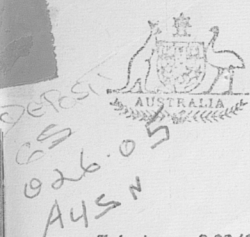 AUSTRALIA
DEPOSIT
GS
026.05
AUS N